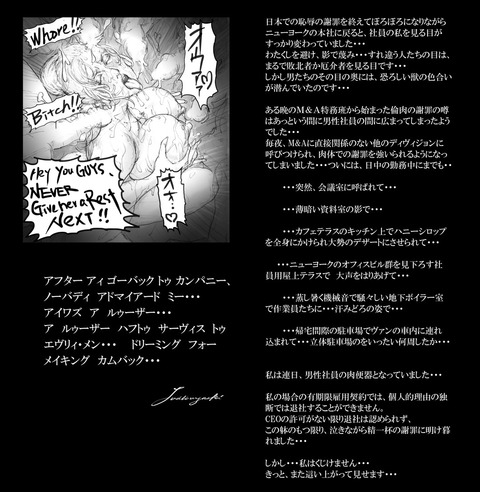 Whore!!
Bitch!!
Hey You GUYS,
NEVER
Give her a Rest
NEXT!!
アフター アィ ゴーバック トゥ カンパニー、
ノーバディ アドマイアード ミー・・・
アイワズ ア ルゥーザー・・・
ア ルゥーザー ハフトゥ サーヴィス トゥ
エヴリィ・メン・・・ ドリーミング フォー
メイキング カムバック・・・
日本での恥辱の謝罪を終えてぼろぼろになりながら
ニューヨークの本社に戻ると、社員の私を見る目が
すっかり変わっていました・・・
わたくしを避け、影で蔑み・・・すれ違う人たちの目は、
まるで敗北者か厄介者を見る目です・・・
しかし男たちのその目の奥には、恐ろしい獣の色合い
が潜んでいたのです・・・
ある晩のM&A特務班から始まった倫肉の謝罪の噂
はあっという間に男性社員の間に広まってしまったよう
でした・・・
毎夜、M&Aに直接関係のない他のディヴィジョンに
呼びつけられ、肉体での謝罪を強いられるようになっ
てしまいました・・・ついには、日中の勤務中にまでも・・
・・・突然、会議室に呼ばれて・・・
・・・薄暗い資料室の影で・・・
・・・カフェテラスのキッチン上でハニーシロップ
を全身にかけられ大勢のデザートにさせられて・・・
・・・ニューヨークのオフィスビル群を見下ろす社
員用屋上テラスで 大声をはりあげて・・・
・・・蒸し暑く機械音で騒々しい地下ボイラー室
で作業員たちに・・・汗みどろの姿で・・・
・・・帰宅間際の駐車場でヴァンの車内に連れ
込まれて・・・立体駐車場のをいったい何周したか・・・
私は連日、男性社員の肉便器となっていました・・・
私の場合の有期限雇用契約では、個人的理由の独
断では退社することができません。
CEOの許可がない限り退社は認められず、
この躰のもつ限り、泣きながら精一杯の謝罪に明け暮
れました・・・
しかし・・・私はくじけません・・・
きっと、また這い上がって見せます・・・